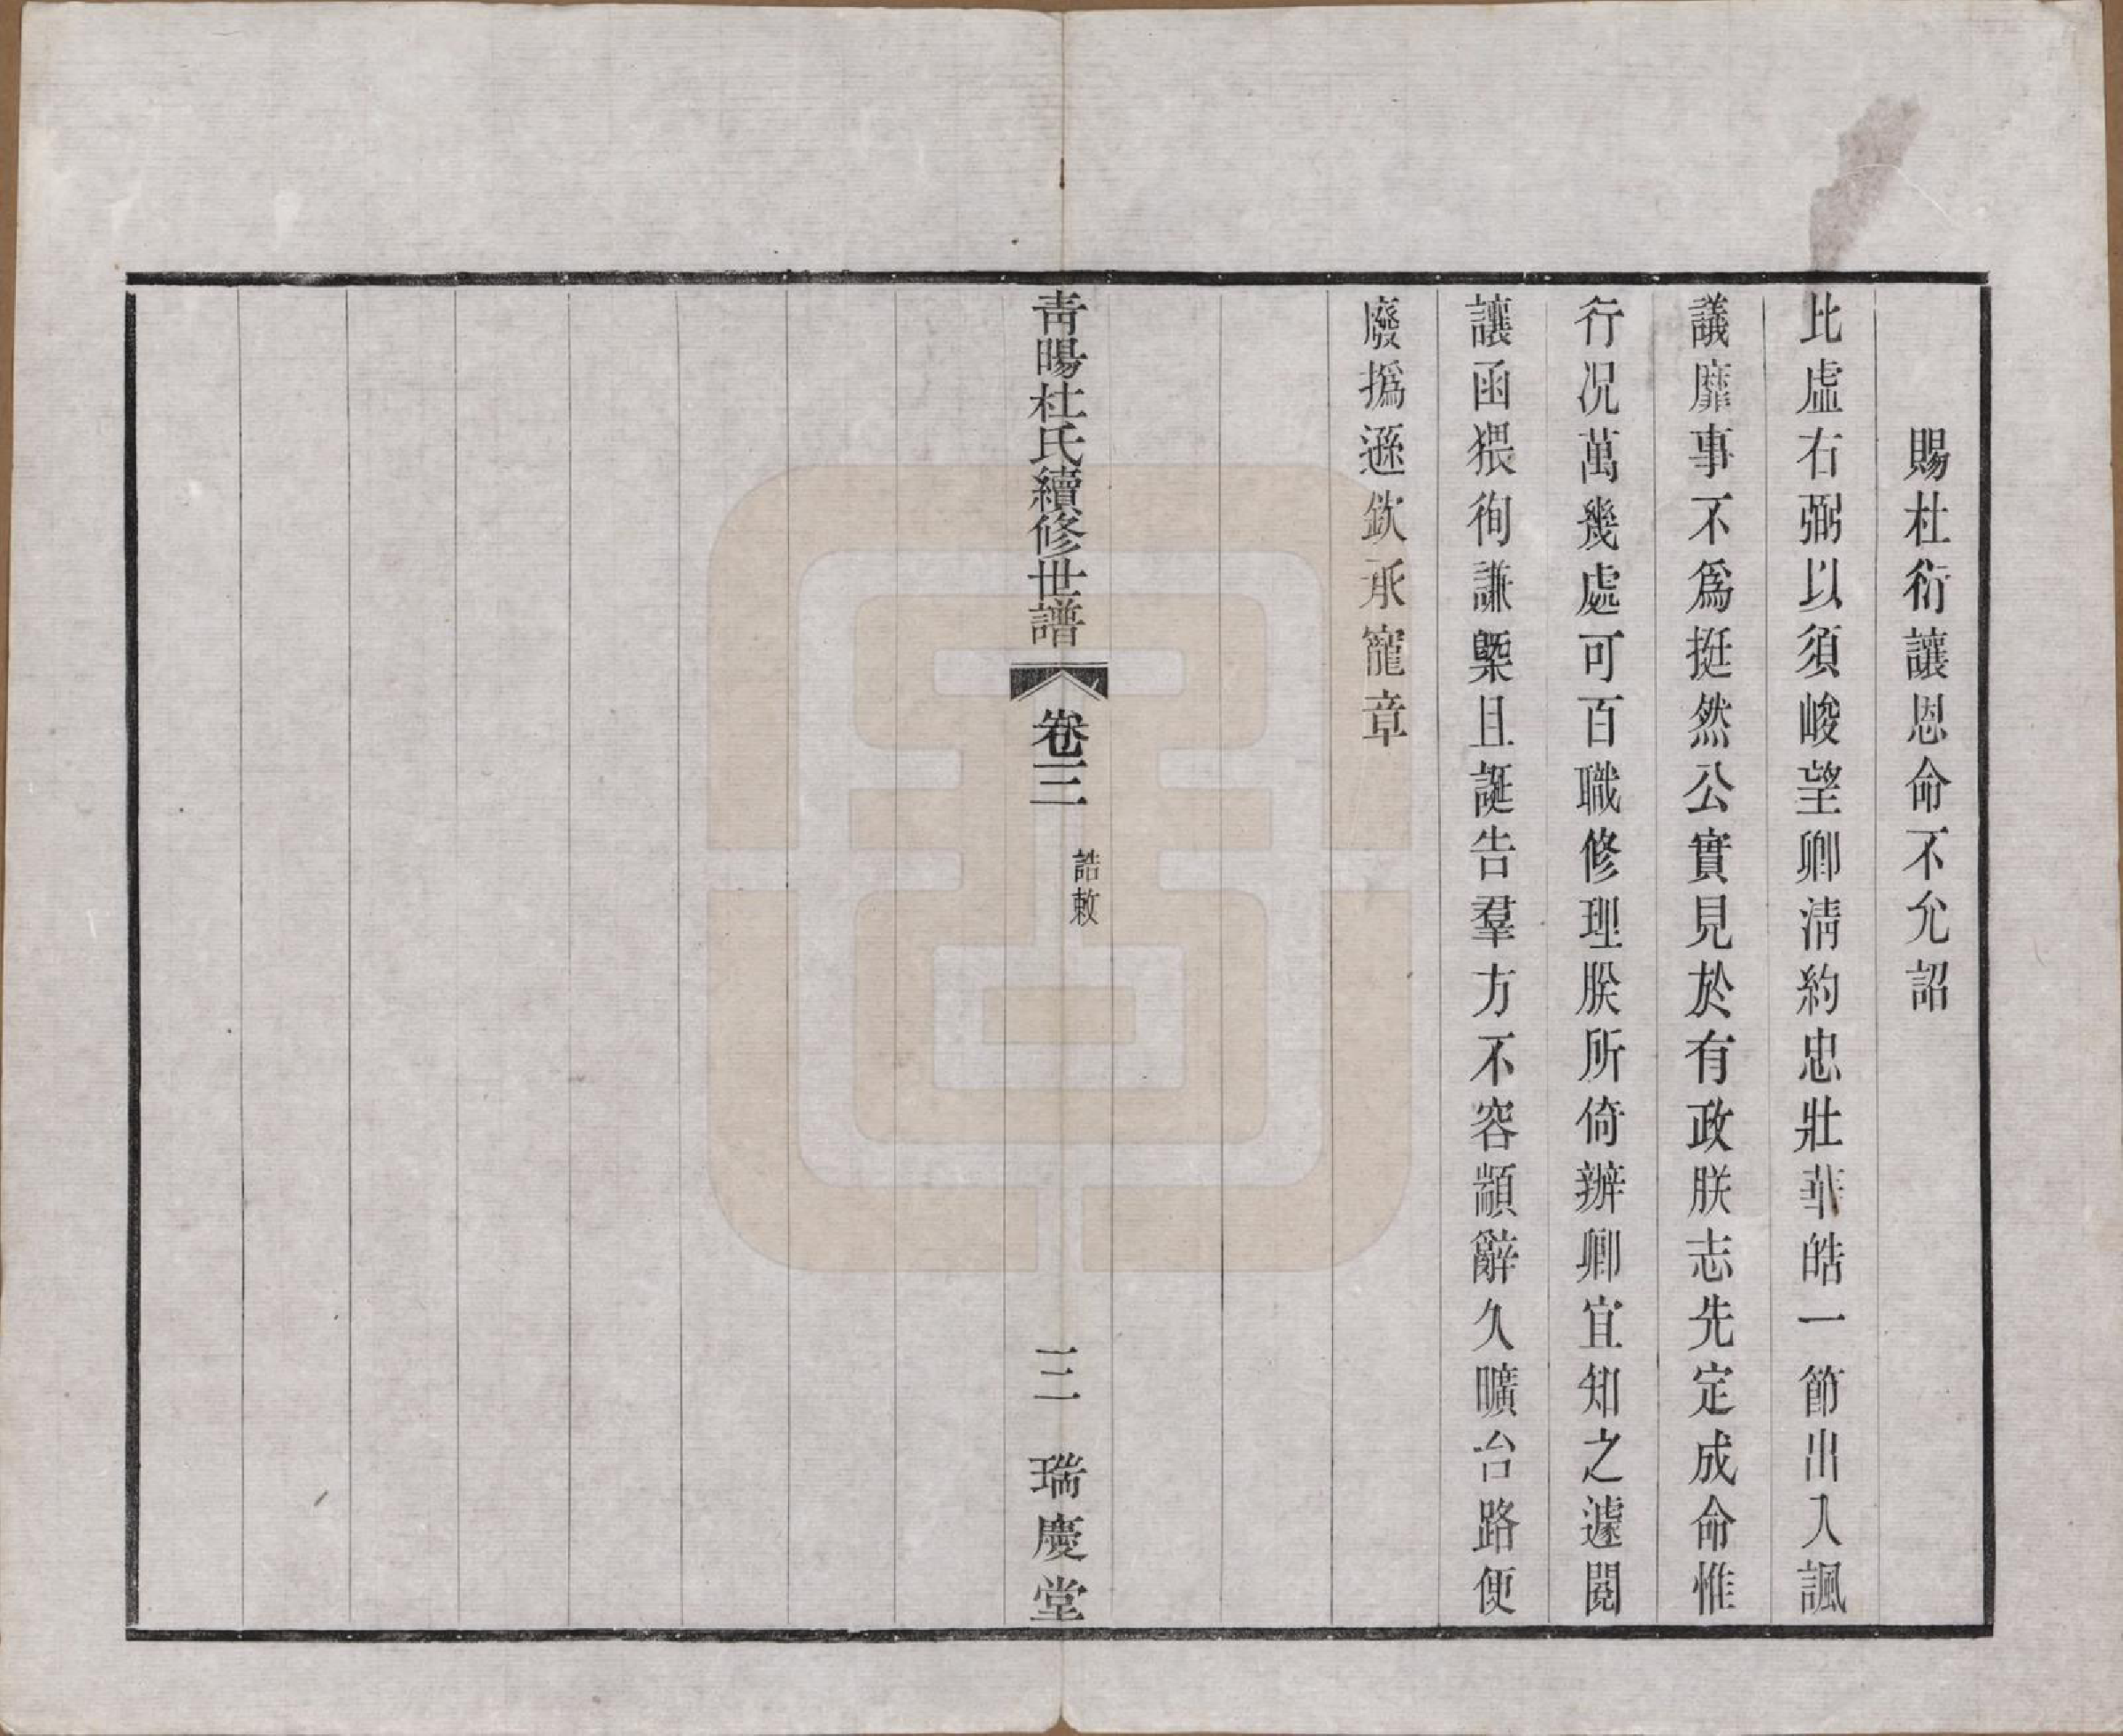 賜杜衍讓恩命不允詔
比虛右弼以須峻望卿淸約忠壯華皓一節出入諷
議靡事不爲挺然公實見於有政朕志先定成命惟
行况萬幾處可百職修理朕所倚辦卿宜知之遽閱
讓函猥徇謙槩且誕告羣方不容顓辭久曠台路便
廢撝遜欽承寵章
靑暘杜氏續修世譜
卷三
誥敕
三
瑞慶堂